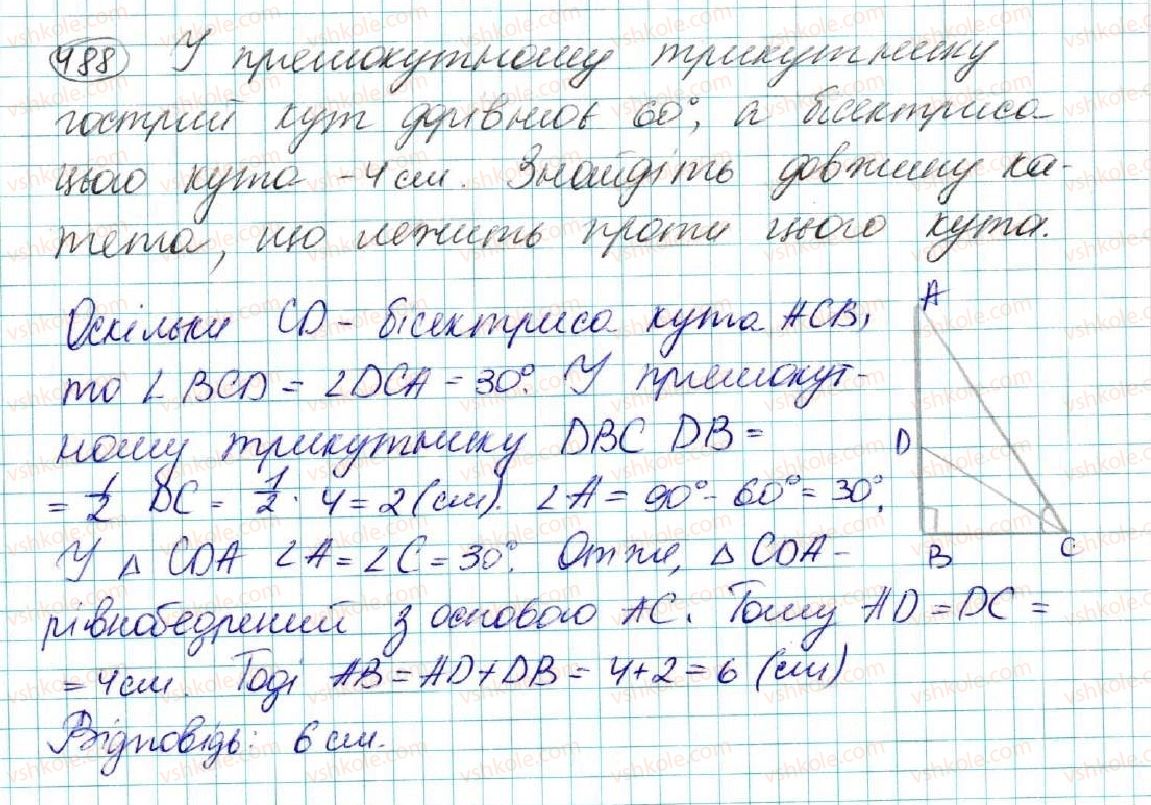 488 У прямокутному трикутнику
гострий кут дорівнює 60°, а бісектриса
цього кута - 4 см. Знайдіть довжину ка-
тета, що лежить проти цього кута.
Оскільки CD - бісектриса кута ACB,
то ∠BCD = ∠DCA = 30°. У прямокут-
ному трикутнику DBC DB =
= 1/2 DC = 1/2 · 4 = 2 (см). ∠A = 90° - 60° = 30°.
У △ CDA ∠A = ∠C = 30°. Отже, △ CDA -
рівнобедрений з основою AC. Тому AD = DC =
= 4 см. Тоді AB = AD + DB = 4 + 2 = 6 (см)
Відповідь: 6 см.
A
D
B
C
vshkole.com